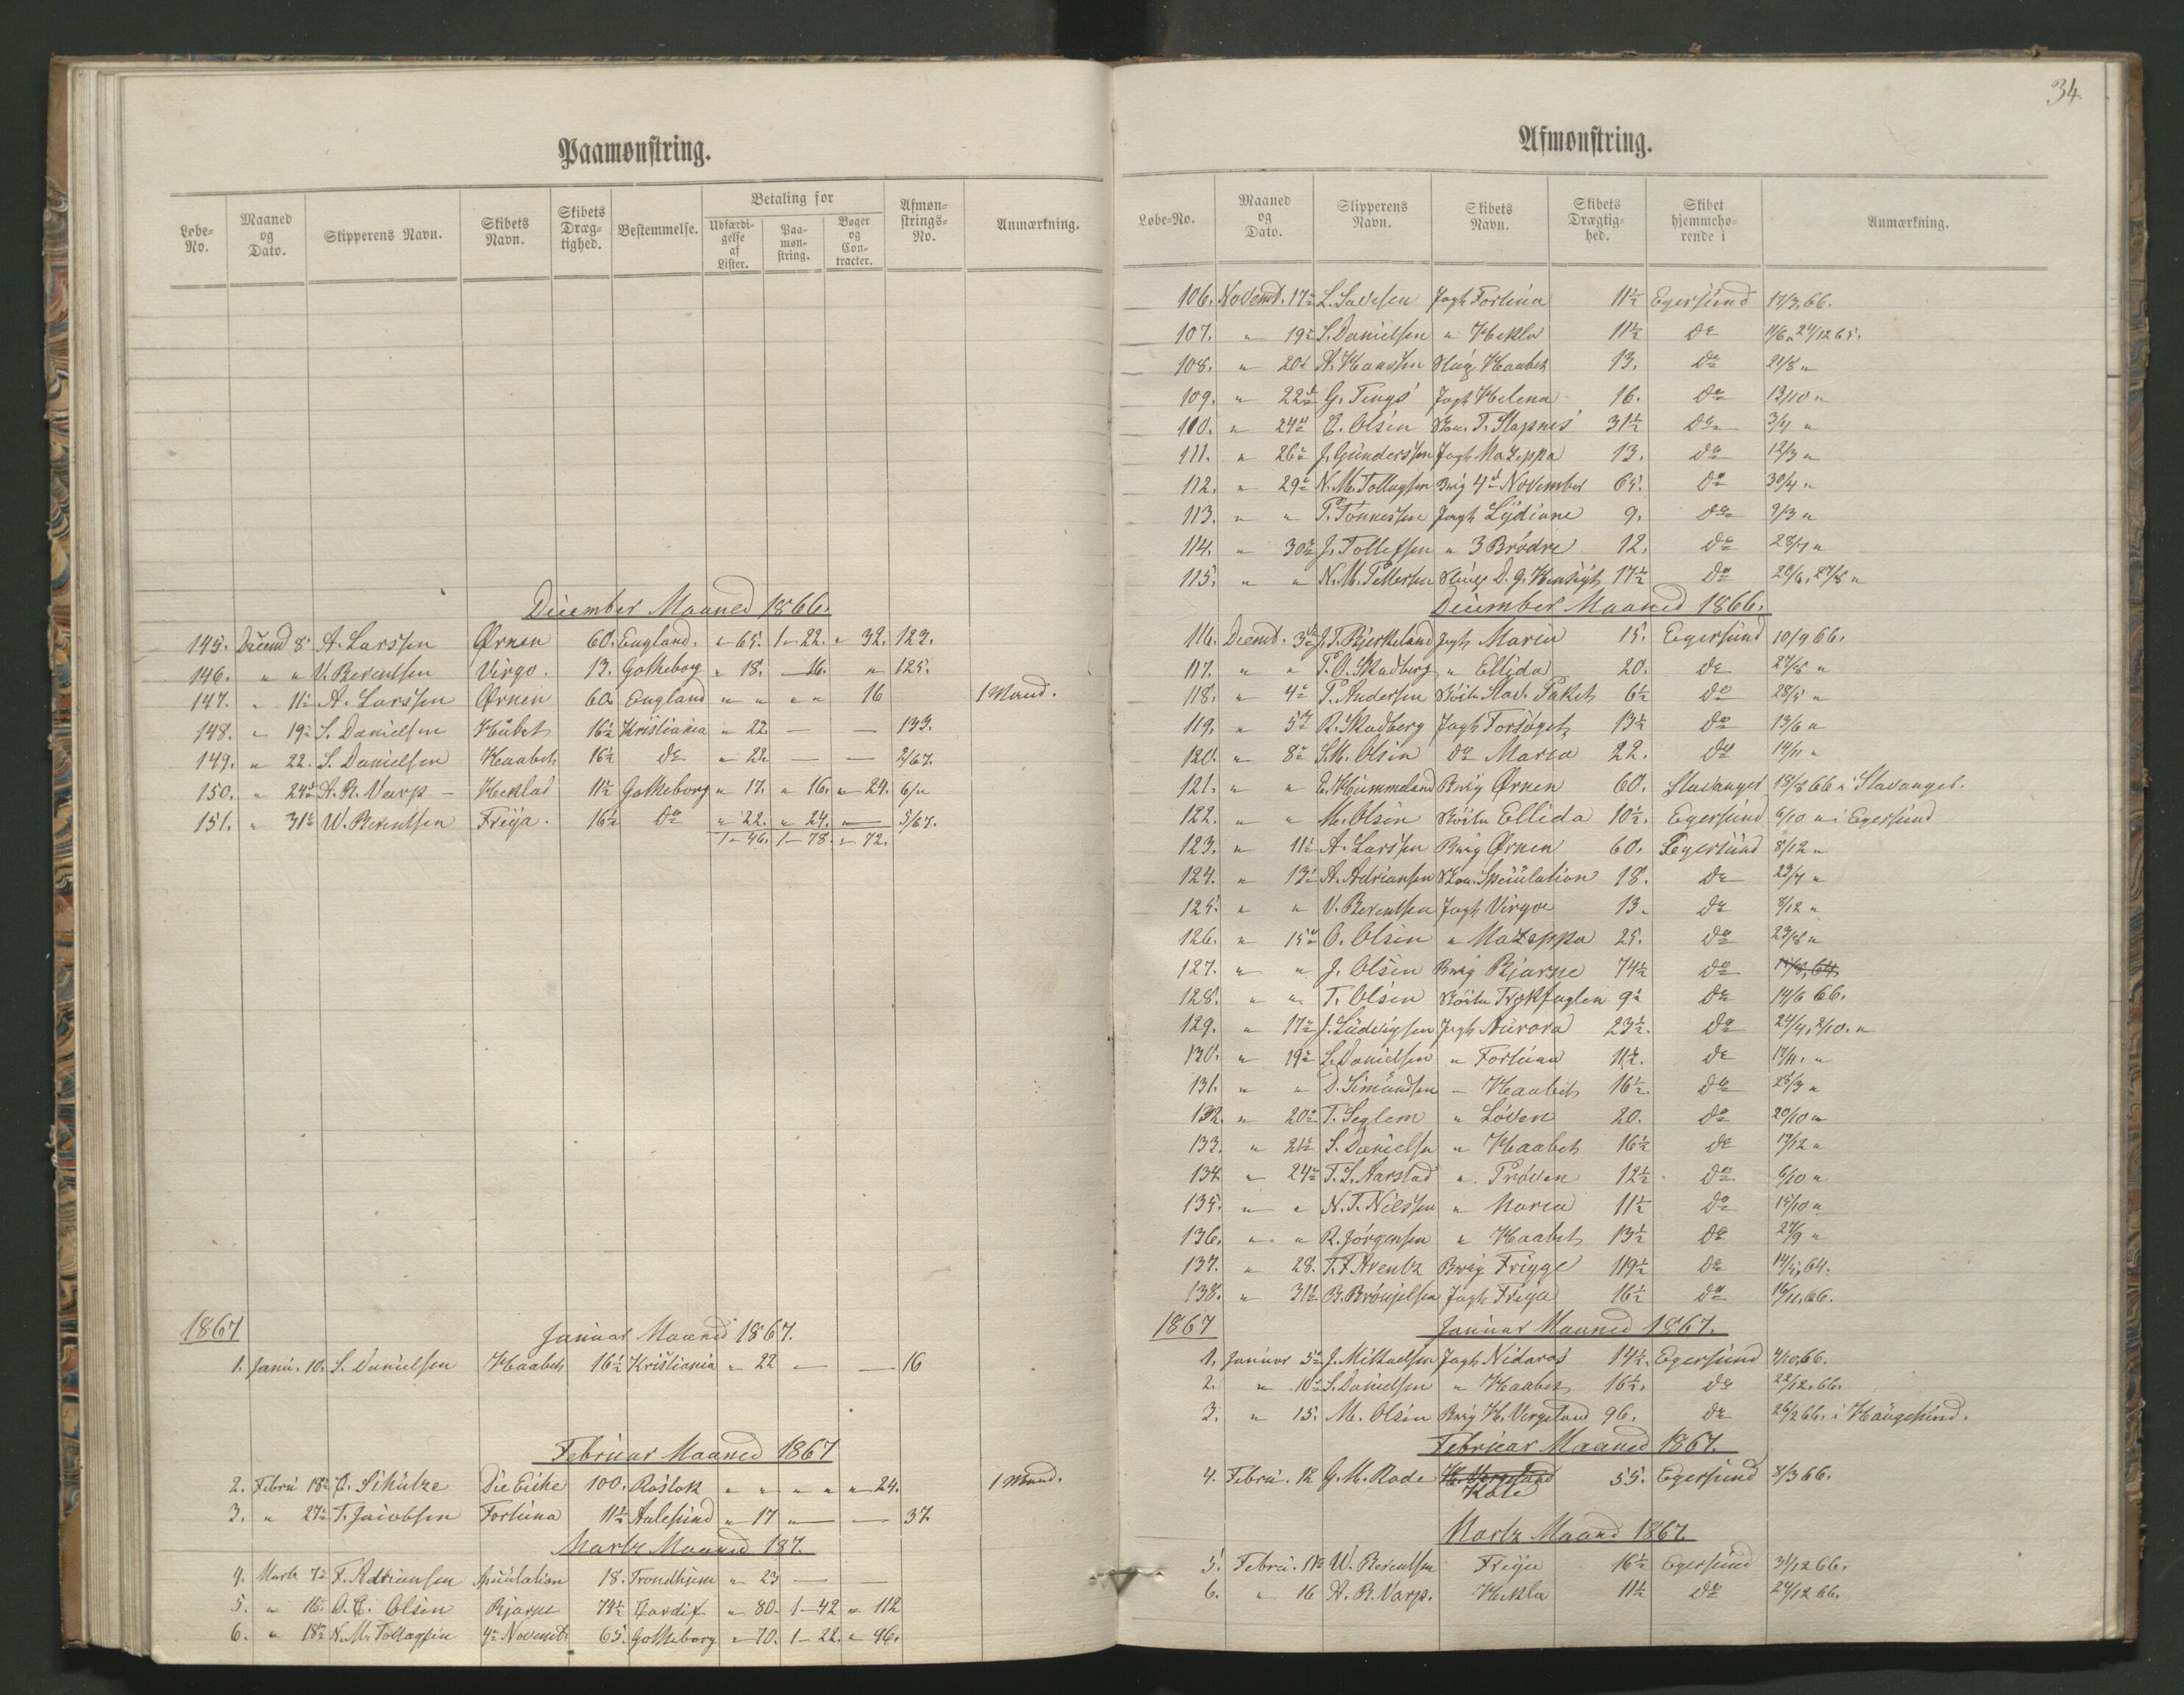 Paamønstring.
Løbe-No. Maaned og Dato. Skipperens Navn. Skibets Navn. Skibets Drægtighed. Bestemmelse. Betaling for Udfærdigelse af Lister. Paamønstring. Bøger og Contracter. Afmønstrings-No. Anmærkning.
December Maaned 1866.
145. Decemb 8 A. Larssen Ørnen 60. England. " 65. 1 - 22. " 32. 123.
146. " " V. Berentsen Virgo. 13. Gotheborg " 18. — 16. " 125.
147. " 11 A. Larssen Ørnen 60 England " " " " 16 1 Mand.
148. " 19 S. Danielsen Håbet 16½ Kristiania " 22 — — 133.
149. " 22. S. Danielsen Haabet 16½ do " 22. — — 2/67.
150. " 24 A. R. Varp — Heklad 11½ Gotheborg " 17. " 16. " 24. 6/"
151. " 31 W. Berentsen Freya. 16½ do " 22. " 24. " — 5/67.
1 - 46. 1 - 78. " 72.
1867
Januar Maaned 1867.
1. Janu. 10. S. Danielsen Haabet 16½ Kristiania " 22 — — 16
Februar Maaned 1867
2. Febru 18 C. Schütze Die Eiche 100. Rostok " " " " " 24. 1 Mand.
3. " 27 T. Jacobsen Fortuna 11½ Aalesund " 17 " — — 37.
Martz Maaned 187.
4. Martz 7 F. Adriansen Speculation 18. Trondhjem " 23 — —
5. " 16 O. C. Olsen Bjarne 74½ Cardif " 80. 1 - 42 " 112
6. " 18 N. M. Tollagsen 4de Novemb 65. Gotheborg " 70. 1 - 22. " 96.
34.
Afmønstring.
Løbe-No. Maaned og Dato. Skipperens Navn. Skibets Navn. Skibets Drægtighed. Skibet hjemmehørende i Anmærkning.
106. Novemb. 17 L. Savesen Jagt Fortuna 11½ Egersund 17/3.66.
107. " 19 S. Danielsen " Hekla 11½ do 11/6 " 24/12 65.
108. " 20 A. Hansen Slup Haabet 13. do 21/8 "
109. " 22 G. Tengs Jagt Helena 16. do 13/10 "
110. " 24 E. Olsen Skon. T. Stapnes 31½ do 3/4 "
111. " 26 J. Gundersen Jagt Mazeppa 13. do 12/3 "
112. " 29 N. M. Tollagsen Brig 4de November 65. do 30/4 "
113. " " P. Tönnessen Jagt Lydiane 9. do 9/3 "
114. " 30 J. Tollefsen " 3 Brødre 12. do 28/7 "
115. " " N. M. Pettersen Slup D. G. Hensigt 17½ do 20/6, 27/8 "
December Maaned 1866.
116. Decmb. 3 J. T. Bjerkeland Jagt Maria 15. Egersund 10/9 66.
117. " " P. O. Skadberg " Ellida 20. do 27/8 "
118. " 4 P. Andersen Skøite Stav. Paket 6½ do 28/5 "
119. " 5 R. Skadberg Jagt Forsøget 13½ do 13/6 "
120. " 8 S. M. Olsen do Maria 22. do 14/11 "
121. " " E. Hummeland Brig Ørnen 60. Stavanger 18/8 66 i Stavanger.
122. " " M. Olsen Skøite Ellida 10½. Egersund 6/10 " i Egersund
123. " 11 A. Larssen Brig Ørnen 60. Eegersund 8/12 "
124. " 13 A. Adriansen Skon. Speculation 18. do 23/7 "
125. " " V. Berentsen Jagt Virgoe 13. do 8/12 "
126. " 15 O. Olsen " Mazeppa 25. do 29/8 "
127. " " J. Olsen Brig Bjarne 74½ do 19/8, 64.
128. " " T. Olsen Skøite Trækfuglen 9½ do 14/6 66.
129. " 17 J. Ludvigsen Jagt Aurora 23½. do 24/4, 2/10. "
130. " 19 S. Danielsen " Fortuna 11½. do 17/11. "
131. " " D. Simundsen — Haabet 16½. do 28/3 "
132. " 20 T. Seglem " Løven 20. do 20/10 "
133. " 21 S. Danielsen " Haabet 16½ do 19/12 "
134 " 24 T. S. Aarstad " Prøven 12½ do 6/10 "
135. " " N. T. Nilssen " Maria 11½ do 15/10 "
136. " " R. Jørgensen " Haabet 13½ do 27/9 "
137. " 28. T. F. Arentz Brig Frigge 119½ do 14/5, 64.
138. " 31 B. Bröijelsen Jagt Freya 16½ do 16/11, 66.
1867
Januar Maaned 1867.
1. Januar 5 J. Mikkaelsen Jagt Nidaros 14½. Egersund 4/10,66.
2. " 10 S. Danielsen " Haabet 16½. do 22/12.66.
3. " 15. M. Olsen Brig H. Vergeland 96. do 26/2 66. i Haugesund.
Februar Maaned 1867.
4. Febru. 12 G. M. Rode H. Vergeland Kate 55. Egersund 8/3 66.
Martz Maaned 1867.
5. Febru. 11 W. Berentsen Freya 16½ Egersund 31/12 66.
6. " 16 A. R. Varp. Hekla 11½ do 24/12 66.